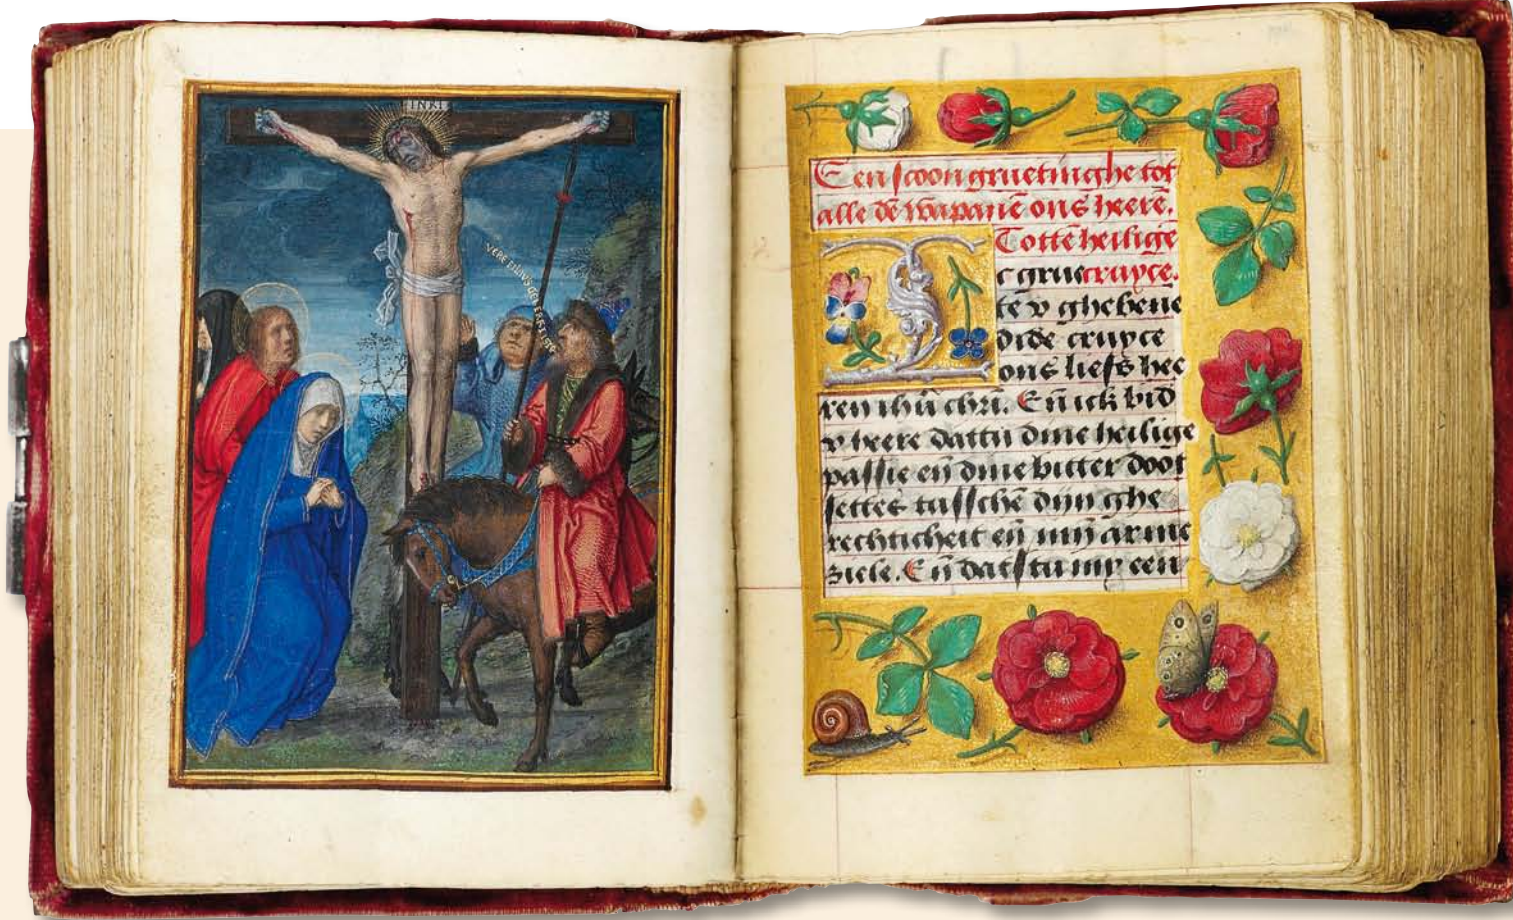 INRI
VERE FILIUS DEI ERAT ISTE
Een scoon gruetinghe tot
alle dē wapanē ons heerē.
Tottē heilige
c gruecruyce.
te v ghebene
dide cruyce
ons liefs hee
ren ihū chrī. Eñ ick bid
v heere dattu dine heilige
passie eñ dine bitter doot
settes tusschē dijn ghe
rechticheit eñ mijn arme
ziele. Eñ datstu my een